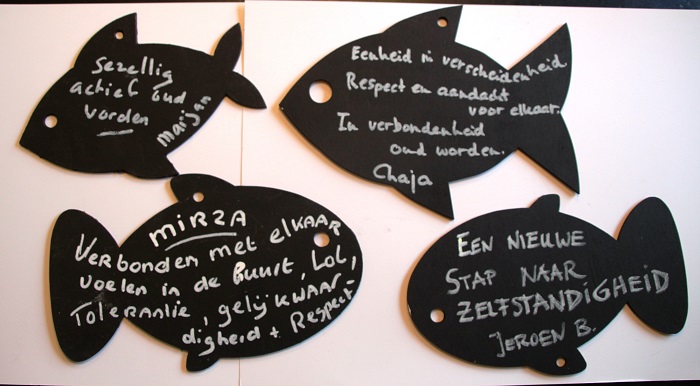 Gezellig
actief oud
worden
Marijan
Eenheid in verscheidenheid
Respect en aandacht
voor elkaar.
In verbondenheid
oud worden.
Chaja
MIRZA
Verbonden met elkaar
voelen in de buurt, Lol,
Tolerantie, gelijkwaar
digheid + Respect
EEN NIEUWE
STAP NAAR
ZELFSTANDIGHEID
JEROEN B.